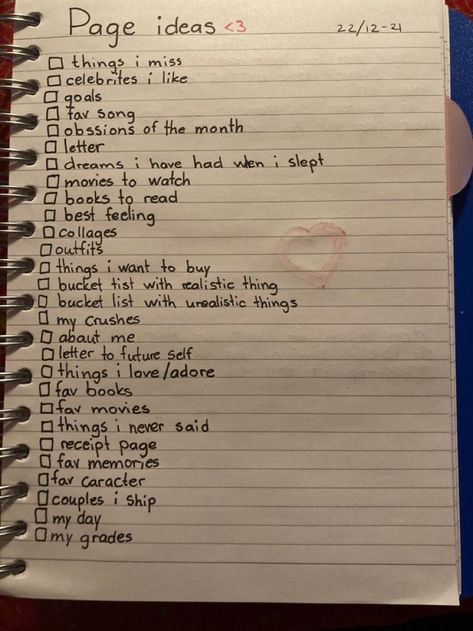 Page ideas <3
22/12-21
things i miss
celebrites i like
goals
fav song
obssions of the month
letter
dreams i have had wen i slept
movies to watch
books to read
best feeling
collages
outfits
things i want to buy
bucket tist with realistic thing
bucket list with urealistic things
my crushes
abaut me
letter to future self
things i love/adore
fav books
fav movies
things i never said
receipt page
fav memories
fav caracter
couples i ship
my day
my grades